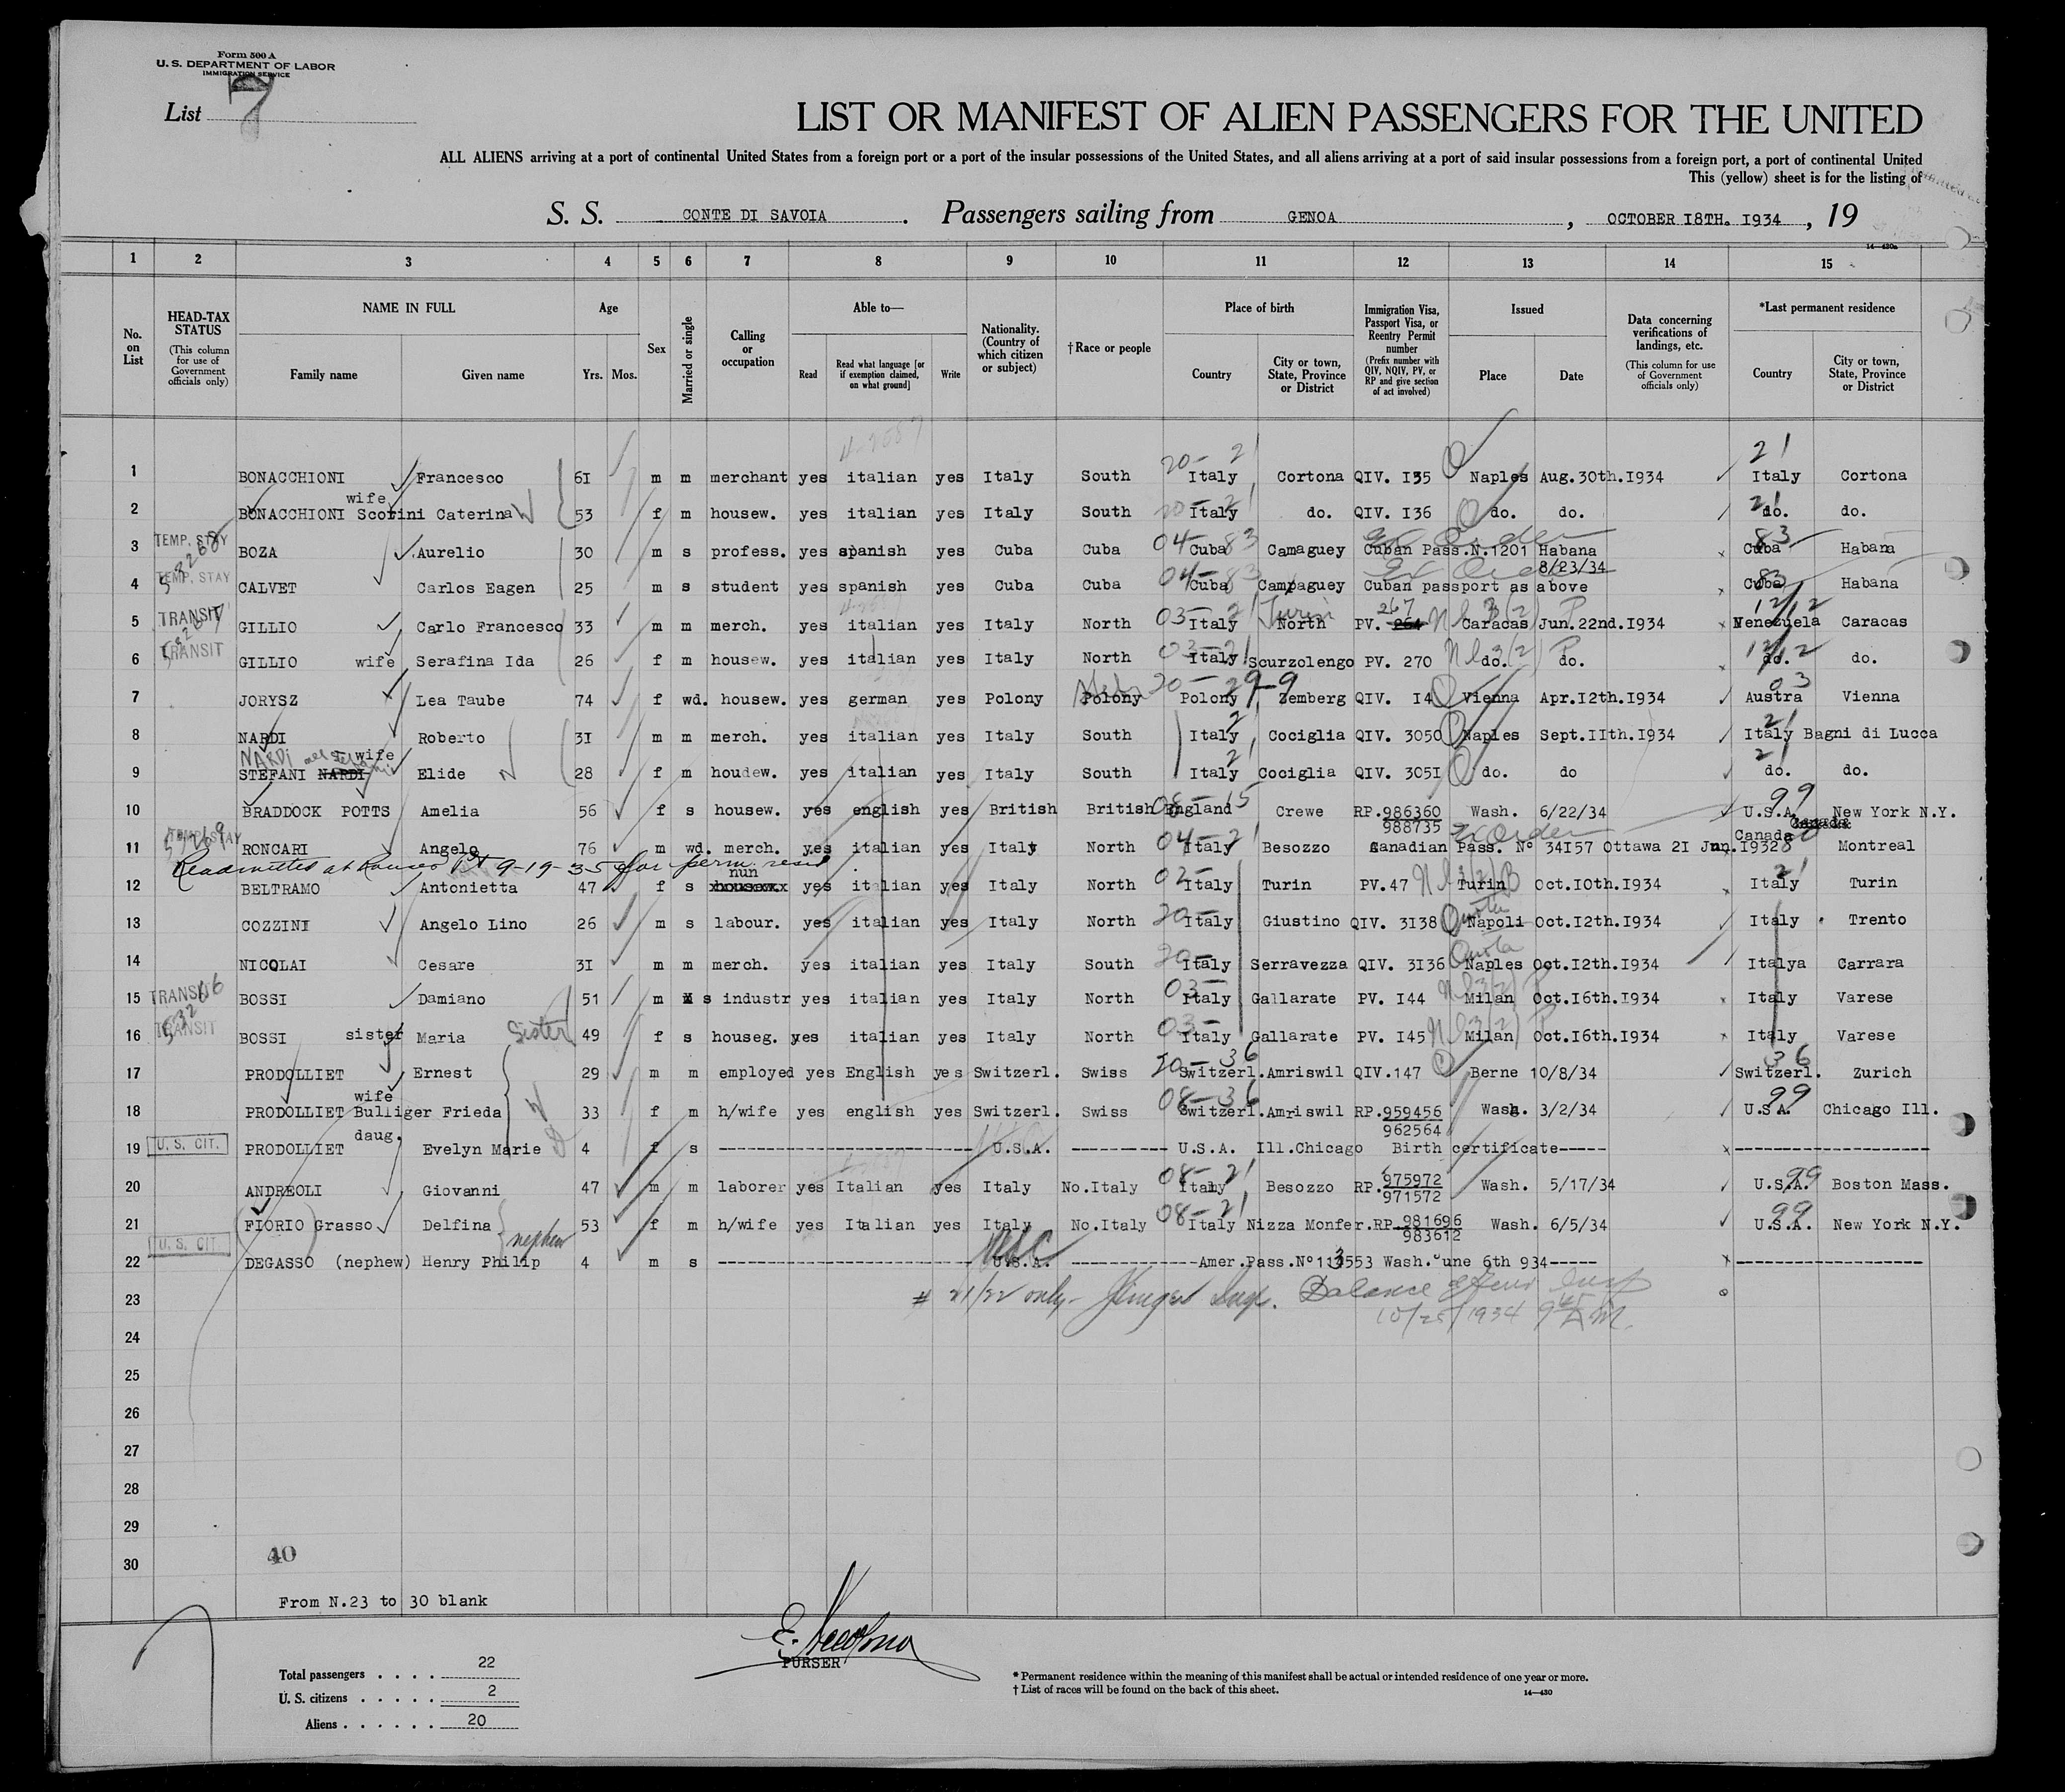 Form 500 A
U. S. DEPARTMENT OF LABOR
IMMIGRATION SERVICE
List 7
LIST OR MANIFEST OF ALIEN PASSENGERS FOR THE UNITED
ALL ALIENS arriving at a port of continental United States from a foreign port or a port of the insular possessions of the United States, and all aliens arriving at a port of said insular possessions from a foreign port, a port of continental United
This (yellow) sheet is for the listing of
S. S. CONTE DI SAVOIA. Passengers sailing from GENOA, OCTOBER I8TH. I934, 19
14—430a
1 2 3 4 5 6 7 8 9 10 11 12 13 14 15
No. on List
HEAD-TAX STATUS (This column for use of Government officials only)
NAME IN FULL Family name Given name
Age Yrs. Mos.
Sex
Married or single
Calling or occupation
Able to— Read Read what language [or if exemption claimed, on what ground] Write
Nationality. (Country of which citizen or subject)
†Race or people
Place of birth Country City or town, State, Province or District
Immigration Visa, Passport Visa, or Reentry Permit number (Prefix number with QIV, NQIV, PV, or RP and give section of act involved)
Issued Place Date
Data concerning verifications of landings, etc. (This column for use of Government officials only)
*Last permanent residence Country City or town, State, Province or District
1 BONACCHIONI Francesco 6I m m merchant yes italian yes Italy South 20- 21 Italy Cortona QIV. I35 Naples Aug.30th.I934 21 Italy Cortona
2 BONACCHIONI wife Scorini Caterina 53 f m housew. yes italian yes Italy South 20- 21 Italy do. QIV. I36 do. do. 21 do. do.
3 TEMP. STAY BOZA Aurelio 30 m s profess. yes spanish yes Cuba Cuba 04- 83 Cuba Camaguey Cuban Pass.N.1201 Habana 8/23/34 83 Cuba Habana
4 TEMP. STAY CALVET Carlos Eagen 25 m s student yes spanish yes Cuba Cuba 04- 83 Cuba Campaguey Cuban passport as above 83 Cuba Habana
5 TRANSIT GILLIO Carlo Francesco 33 m m merch. yes italian yes Italy North 03- 21 Italy North Turin PV. 264 267 Nl 3(2) P Caracas Jun.22nd.I934 12/12 Venezuela Caracas
6 TRANSIT GILLIO wife Serafina Ida 26 f m housew. yes italian yes Italy North 03-21 Italy Scurzolengo PV. 270 Nl 3(2) P do. do. 12/12 do. do.
7 JORYSZ Lea Taube 74 f wd. housew. yes german yes Polony Polony 20- 29-9 Polony Zemberg QIV. I4 Vienna Apr.I2th.I934 03 Austra Vienna
8 NARDI Roberto 3I m m merch. yes italian yes Italy South 21 Italy Cociglia QIV. 3050 Naples Sept.IIth.I934 21 Italy Bagni di Lucca
9 NARDI STEFANI NARDI wife Elide 28 f m houdew. yes italian yes Italy South 21 Italy Cociglia QIV. 305I do. do 21 do. do.
10 BRADDOCK POTTS Amelia 56 f s housew. yes english yes British British 08- 15 England Crewe RP.986360 988735 Wash. 6/22/34 99 U.S.A. New York N.Y.
11 RONCARI Angelo 76 m wd. merch. yes italian yes Italy North 04- 21 Italy Besozzo Canadian Pass. Nº 34I57 Ottawa 2I Jun.I932 Canada Montreal
Readmitted at Rouses Pt 9-19-35 for perm. resid
12 BELTRAMO Antonietta 47 f s nun yes italian yes Italy North 02- Italy Turin PV.47 Turin Oct.I0th.I934 21 Italy Turin
13 COZZINI Angelo Lino 26 m s labour. yes italian yes Italy North 20- Italy Giustino QIV. 3I38 Quota Napoli Oct.I2th.I934 Italy Trento
14 NICOLAI Cesare 3I m m merch. yes italian yes Italy South 20- Italy Serravezza QIV. 3I36 Quota Naples Oct.I2th.I934 Italya Carrara
15 TRANSIT BOSSI Damiano 51 m s industr yes italian yes Italy North 03- Italy Gallarate PV. I44 Milan Oct.I6th.I934 Italy Varese
16 TRANSIT BOSSI sister Maria Sister 49 f s houseg. yes italian yes Italy North 03- Italy Gallarate PV. I45 Nl 3(2) P Milan Oct.I6th.I934 Italy Varese
17 PRODOLLIET Ernest 29 m m employed yes English yes Switzerl. Swiss 20- 36 Switzerl. Amriswil QIV.147 Berne 10/8/34 36 Switzerl. Zurich
18 PRODOLLIET wife Bulliger Frieda 33 f m h/wife yes english yes Switzerl. Swiss 08- 36 Switzerl. Amriswil RP.959456 962564 Wash. 3/2/34 99 U.S.A. Chicago Ill.
19 U. S. CIT. PRODOLLIET daug. Evelyn Marie 4 f s ---------- U.S.A. ---------- U.S.A. Ill.Chicago Birth certificate----- ----------
20 ANDREOLI Giovanni 47 m m laborer yes Italian yes Italy No.Italy 08- 21 Italy Besozzo RP.975972 971572 Wash. 5/17/34 99 U.S.A. Boston Mass.
21 FIORIO Grasso Delfina 53 f m h/wife yes Italian yes Italy No.Italy 08-21 Italy Nizza Monfer. RP.981696 983612 Wash. 6/5/34 99 U.S.A. New York N.Y.
22 U. S. CIT. DEGASSO (nephew) Henry Philip nephew 4 m s ---------- USC U.S.A. ---------- Amer.Pass.Nº113553 Wash. une 6th 934----- ----------
23 # 21/22 only- Insp. Balance Insp
24 10/25/1934 9 45 A.M.
25
26
27
28
29
30
40
From N.23 to 30 blank
PURSER
Total passengers . . . . 22
U. S. citizens . . . . . 2
Aliens . . . . . . 20
* Permanent residence within the meaning of this manifest shall be actual or intended residence of one year or more.
† List of races will be found on the back of this sheet.
14—430